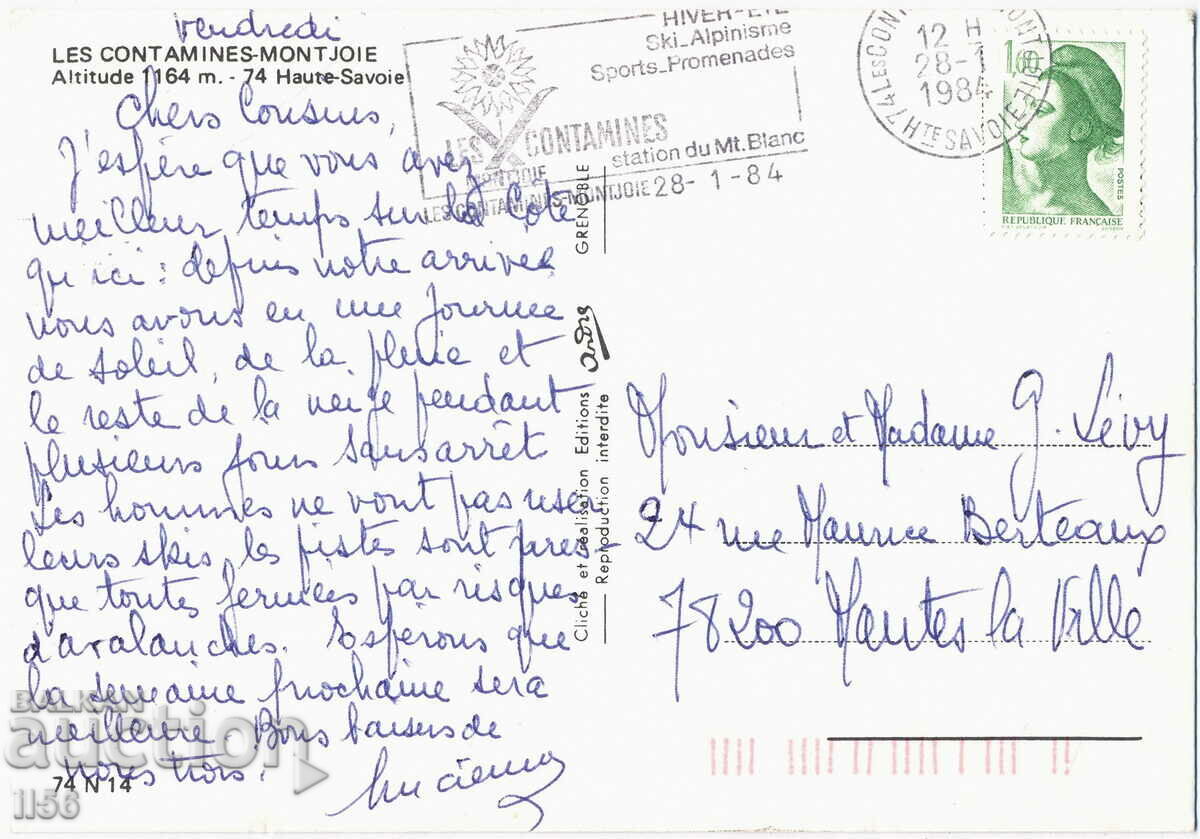 vendredi
LES CONTAMINES-MONTJOIE
Altitude 1164 m. - 74 Haute-Savoie
Chers Cousins,
J'espère que vous avez
meilleur temps sur la Côte
qu'ici : depuis notre arrivée
nous avons eu une journée
de soleil, de la pluie et
le reste de la neige pendant
plusieurs jours sans arrêt
Les hommes ne vont pas user
leurs skis, les pistes sont pres-
que toutes fermées par risques
d'avalanches. Espérons que
la semaine prochaine sera
meilleure. Bons baisers de
nous trois.
Lucienne
74 N 14
HIVER-ÉTÉ
Ski_Alpinisme
Sports_Promenades
LES CONTAMINES
MONTJOIE
station du Mt. Blanc
LES CONTAMINES-MONTJOIE 28-1-84
12 H
28-1
1984
74 LES CONTAMINES MONTJOIE
HTE SAVOIE
1,60
POSTES
REPUBLIQUE FRANÇAISE
GRENOBLE
André
Cliché et réalisation Editions
Reproduction interdite
Monsieur et Madame G. Lévy
24 rue Maurice Berteaux
78200 Mantes la Ville
BALKAN
auction
1156